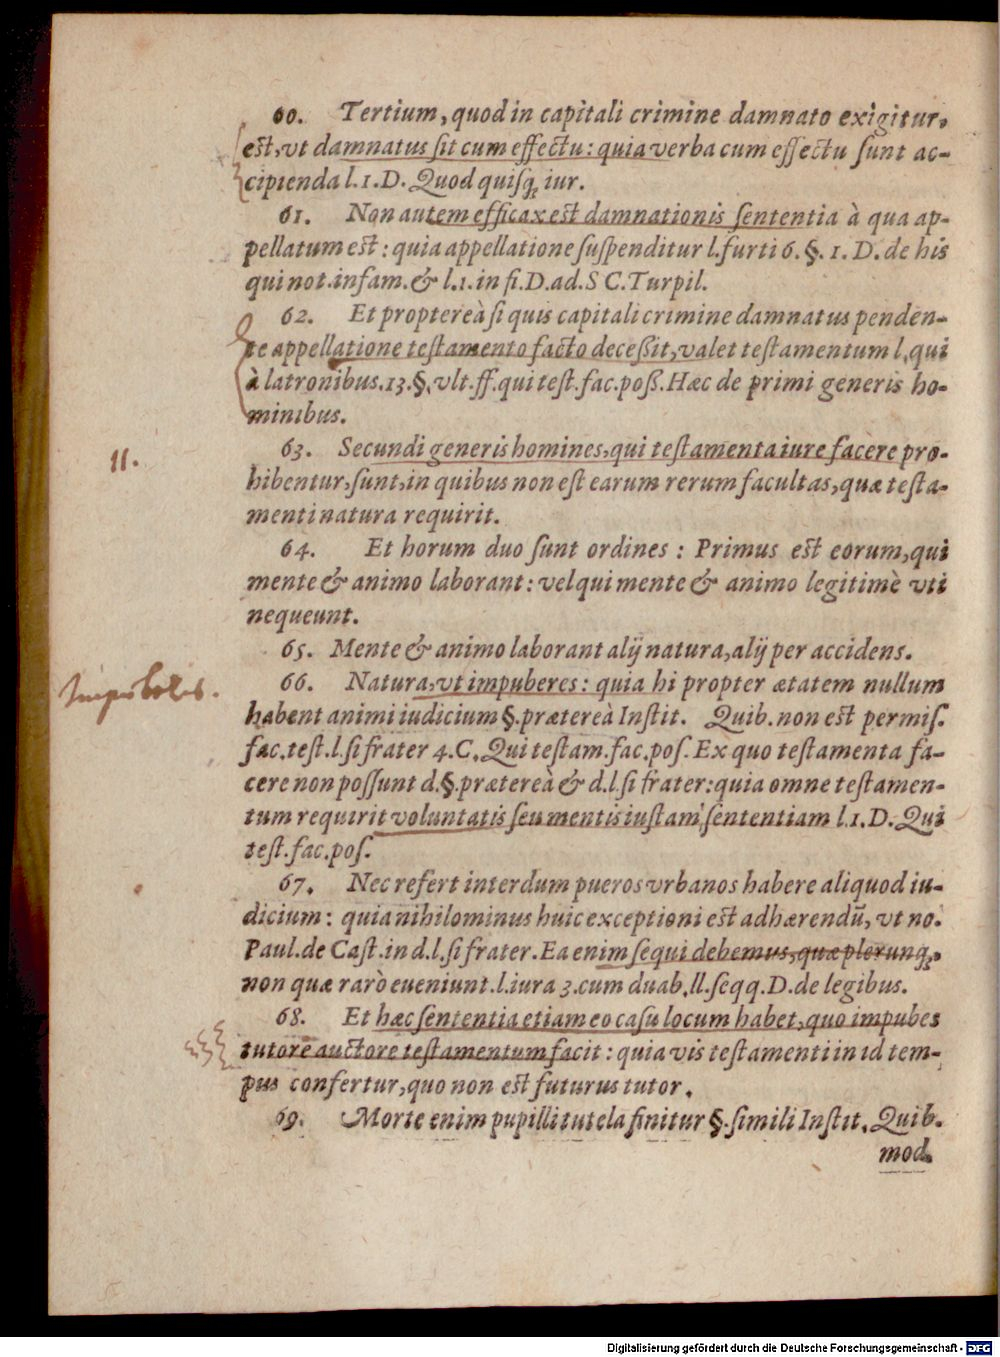 60. Tertium, quod in capitali crimine damnato exigitur,
est, vt damnatus ſit cum effectu: quia verba cum effectu ſunt ac-
cipienda l.1.D. Quod quiſq; iur.
61. Non autem efficax est damnationis ſententia à qua ap-
pellatum est: quia appellatione ſuſpenditur l.furti 6.§.1.D.de his
qui not.infam.& l.1.in fi.D.ad.S C.Turpil.
62. Et proptereà ſi quis capitali crimine damnatus penden-
te appellatione teſtamento facto deceßit, valet teſtamentum l. qui
à latronibus.13.§. vlt.ff.qui teſt.fac.poß. Hæc de primi generis ho-
minibus.
63. Secundi generis homines, qui teſtamenta iure facere pro-
11.
hibentur, ſunt, in quibus non eſt earum rerum facultas, quæ teſta-
menti natura requirit.
64. Et horum duo ſunt ordines: Primus est eorum, qui
mente & animo laborant: vel qui mente & animo legitimè vti
nequeunt.
65. Mente & animo laborant alij natura, alij per accidens.
66. Natura, vt impuberes: quia hi propter ætatem nullum
habent animi iudicium §.prætereà Inſtit. Quib.non est permiſ.
fac.teſt.l.ſi frater 4.C. Qui teſtam.fac.poſ. Ex quo teſtamenta fa-
cere non poſſunt d.§.prætereà & d.l.ſi frater: quia omne teſtamen-
tum requirit voluntatis ſeu mentis iuſtam ſententiam l.1.D. Qui
teſt.fac.poſ.
67. Nec refert interdum pueros vrbanos habere aliquod iu-
dicium: quia nihilominus huic exceptioni est adhærendũ, vt no.
Paul.de Caſt.in d.l.ſi frater. Ea enim ſequi debemus, quæ plerunq;,
non quæ rarò eueniunt.l.iura 3.cum duab.ll.ſeqq.D.de legibus.
68. Et hæc ſententia etiam eo caſu locum habet, quo impubes
tutore auctore teſtamentum facit: quia vis teſtamenti in id tem-
pus confertur, quo non est futurus tutor.
69. Morte enim pupilli tutela finitur §.ſimili Inſtit. Quib.
mod.
Digitalisierung gefördert durch die Deutsche Forschungsgemeinschaft - DFG